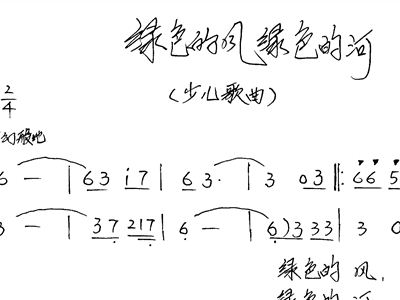 绿色的风绿色的河
2
4
(少儿歌曲)
6 — | 63 i7 | 63· | 3 03 ‖: 66 5
— | 37 217 | 6 — | 6)333 | 3 0
绿色的 风,
绿色的 河